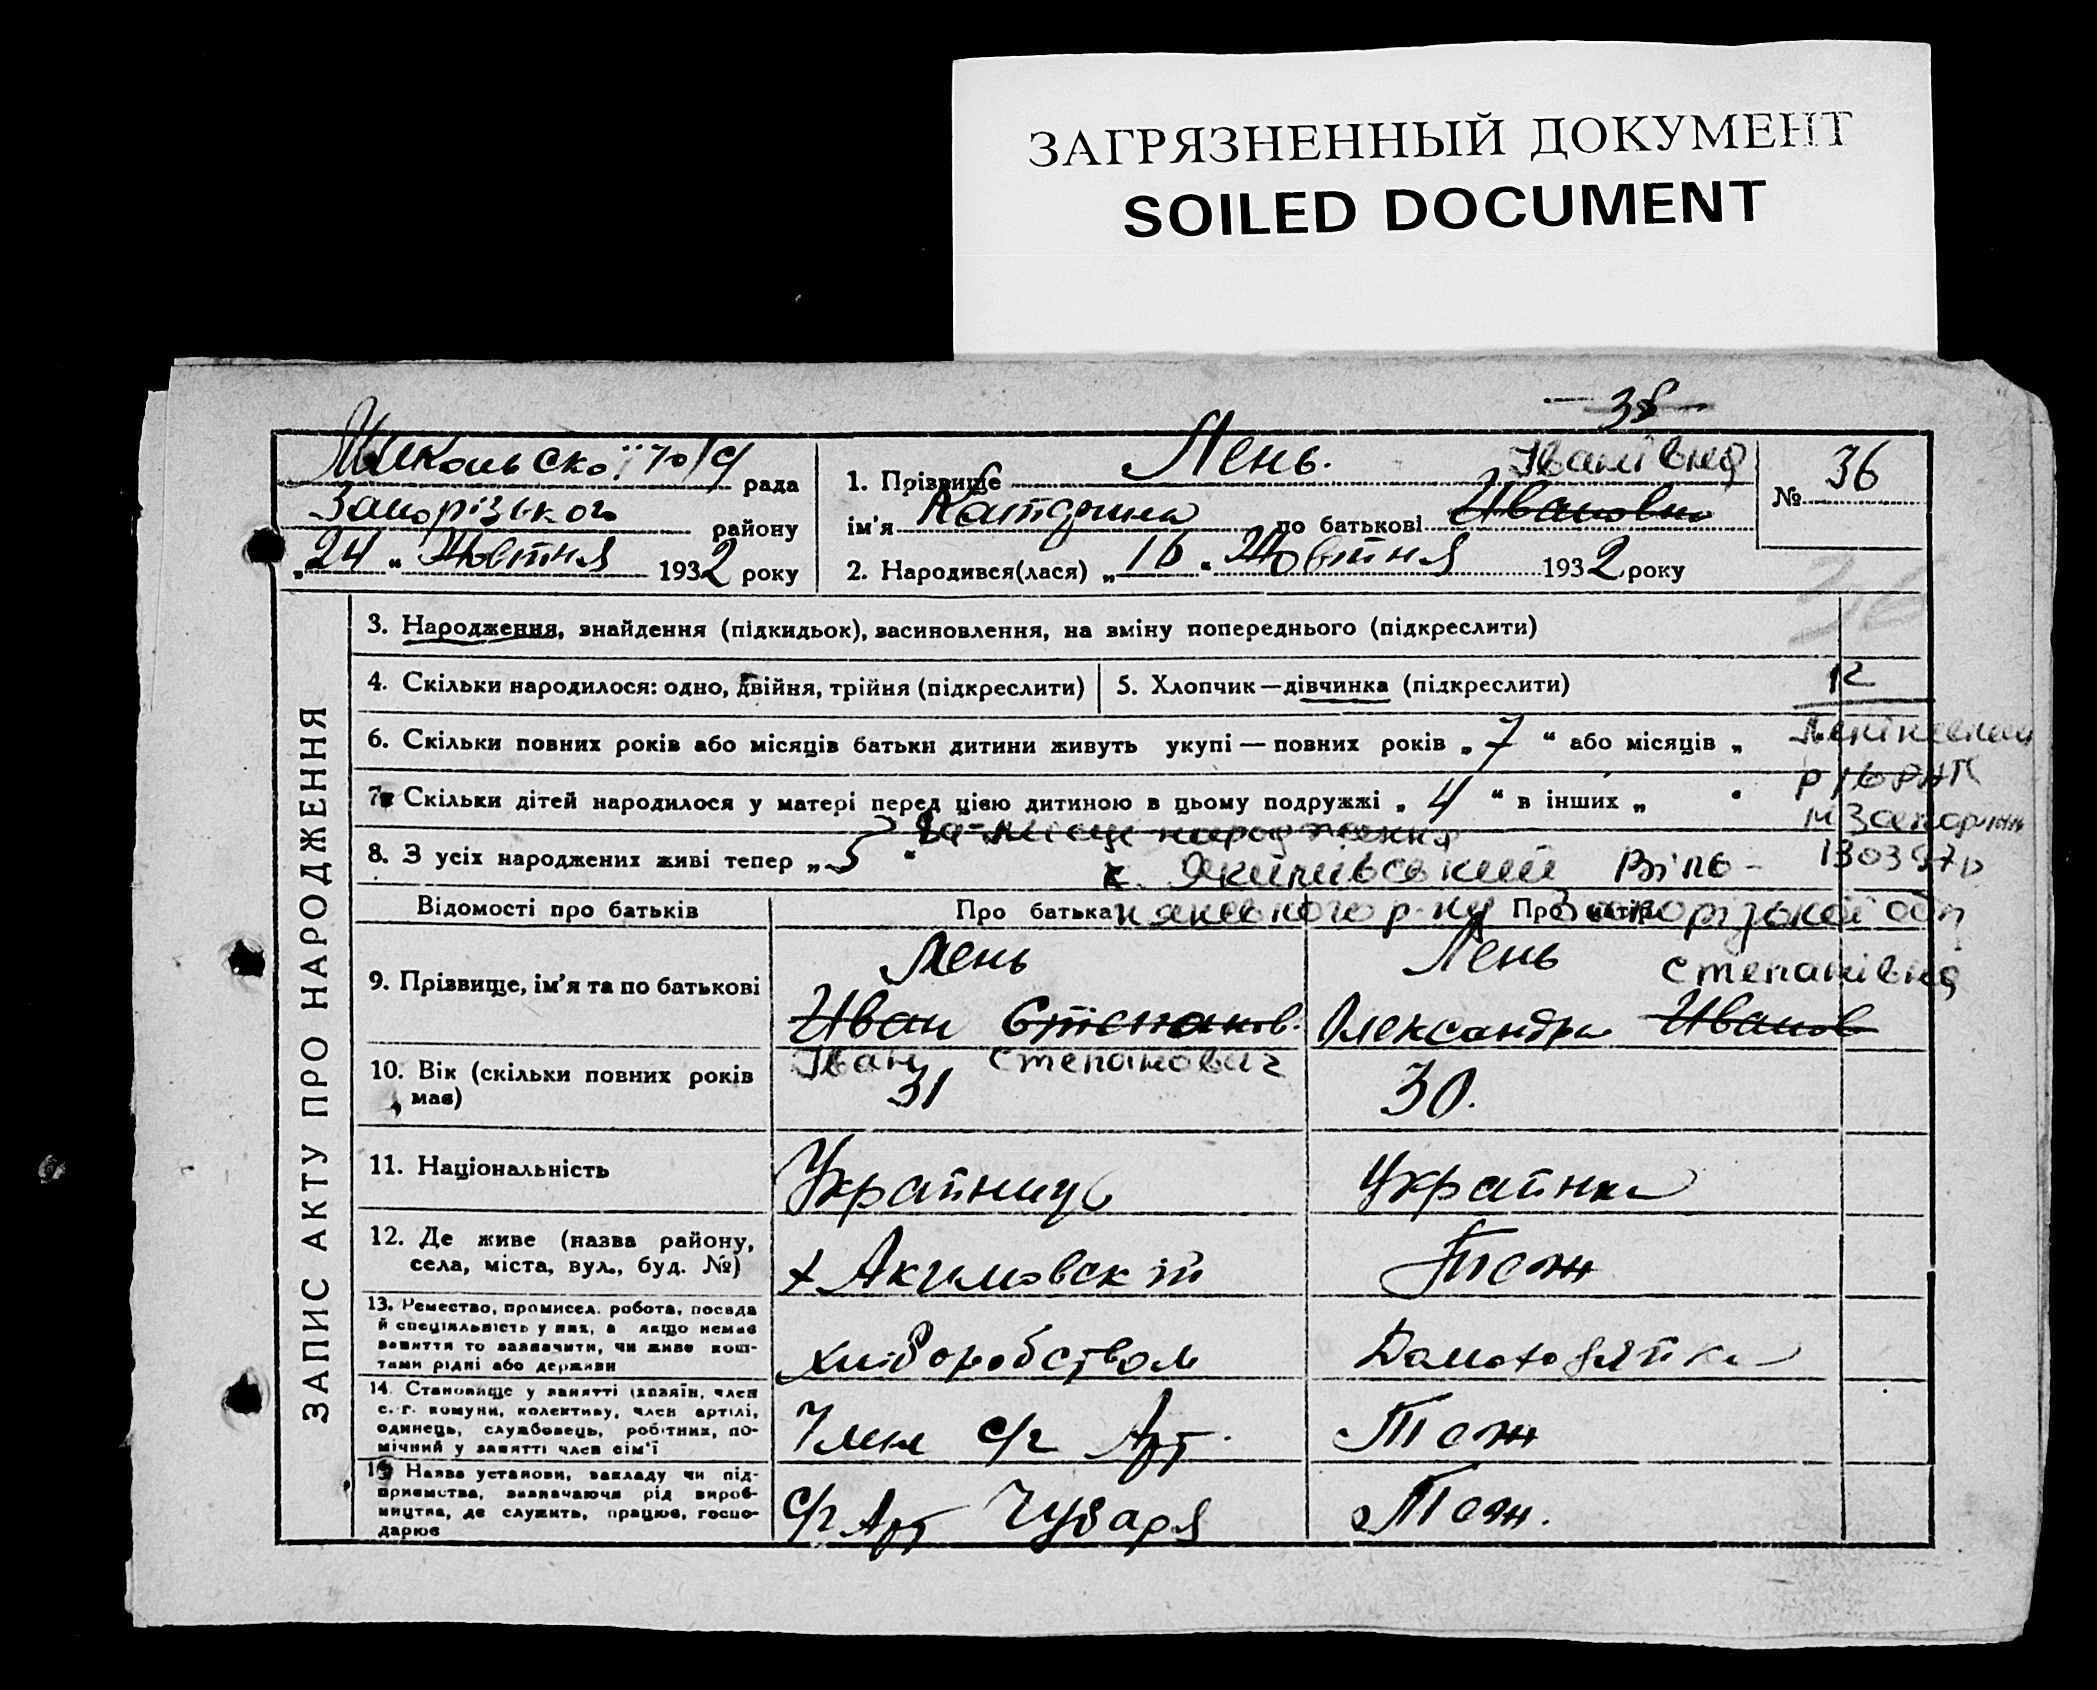 ЗАГРЯЗНЕННЫЙ ДОКУМЕНТ
SOILED DOCUMENT
38
Микольської рада
Запорізького району
„24“ Жовтня 1932 року
1. Прізвище Лень. Іванівна
ім'я Катерина по батькові Ивановно
2. Народився(лася) „16“ Жовтня 1932 року
№ 36
36
ЗАПИС АКТУ ПРО НАРОДЖЕННЯ
3. Народження, знайдення (підкидьок), засиновлення, на зміну попереднього (підкреслити)
4. Скільки народилося: одно, двійня, трійня (підкреслити)
5. Хлопчик—дівчинка (підкреслити)
12
6. Скільки повних років або місяців батьки дитини живуть укупі — повних років „7“ або місяців „
7. Скільки дітей народилося у матері перед цією дитиною в цьому подружжі „4“ в інших „ “
8. З усіх народжених живі тепер „5“
місце народження
х. Якимівський Віль-
нянського р-ну Запорізької обл
Відомості про батьків
Про батька
Про матір
9. Прізвище, ім'я та по батькові
Лень
Иван Степанов.
Іван Степанович
Лень Степанівна
Олександра Иванов
10. Вік (скільки повних років має)
31
30.
11. Національність
Україниць
Українка
12. Де живе (назва району, села, міста, вул., буд. №)
х Акимовскій
Тож
13. Ремество, промисел. робота, посада
й спеціяльність у них, а якщо немає
заняття то зазначити, чи живе кош-
тами рідні або держави
хліборобством
Домохозяйка
14. Становище у занятті (хозяїн, член
с.-г. комуни, колективу, член артілі,
одинець, службовець, робітник, по-
мічний у занятті член сім'ї
Член с/г Арт.
Тож
15. Назва установи, закладу чи під-
приємства, зазначаючи рід вироб-
ництва, де служить, працює, госпо-
дарює
с/г Арт Чубаря
Тож.